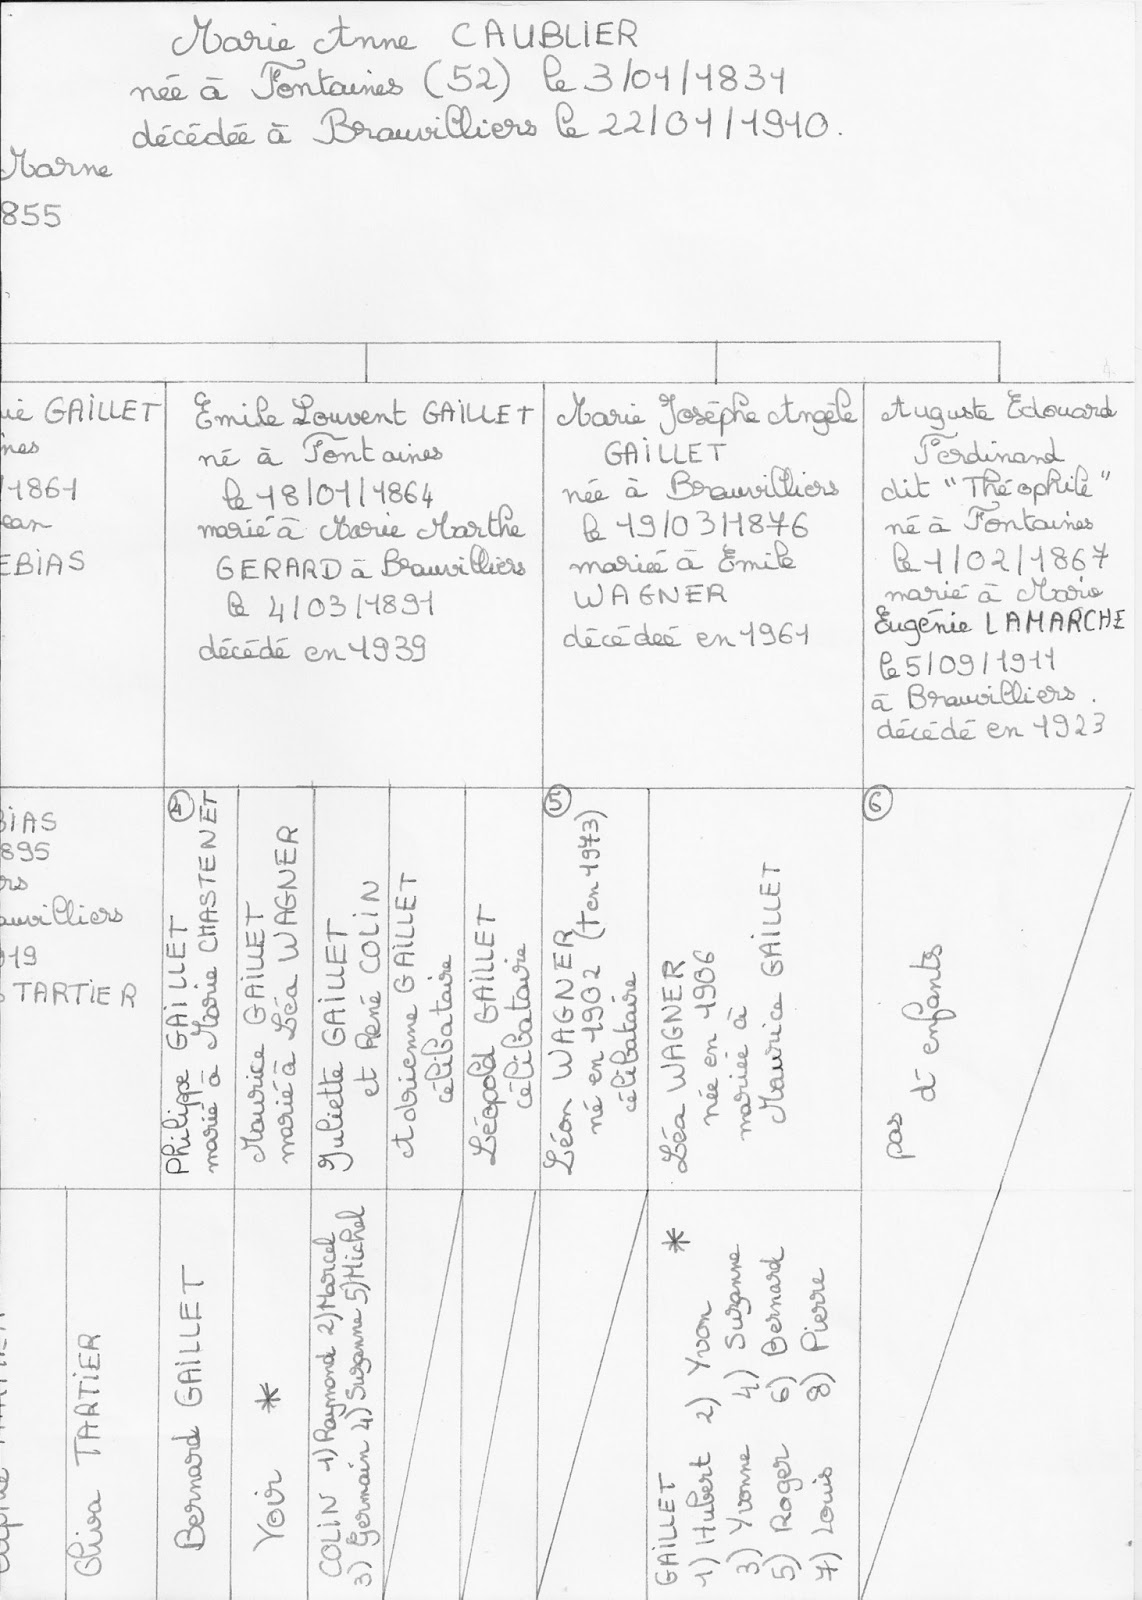 Marie Anne CAUBLIER
née à Fontaines (52) le 3/01/1831
décédée à Brauvilliers le 22/01/1910.
Marne
855
ie GAILLET
nes
/1861
ean
EBIAS
Emile Louvent GAILLET
né à Fontaines
le 18/01/1864
marié à Marie Marthe
GERARD à Brauvilliers
le 4/03/1891
décédé en 1939
Marie Josèphe Angèle
GAILLET
née à Brauvilliers
le 19/03/1876
mariée à Emile
WAGNER
décédeé en 1961
Auguste Edouard
Ferdinand
dit "Théophile"
né à Fontaines
le 1/02/1867
marié à Marie
Eugénie LAMARCHE
le 5/09/1911
à Brauvilliers.
décédé en 1923
BIAS
895
rs
auvilliers
919
TARTIER
4
Philippe GAILLET
marié à Marie CHASTENET
Maurice GAILLET
marié à Léa WAGNER
Juliette GAILLET
et René COLIN
Adrienne GAILLET
célibataire
Léopold GAILLET
célibataire
5
Léon WAGNER
né en 1902 († en 1973)
célibataire
Léa WAGNER
née en 1906
mariée à
Maurice GAILLET
6
pas
d'enfants
Oliva TARTIER
Bernard GAILLET
Voir *
COLIN 1) Raymond 2) Marcel
3) Germain 4) Suzanne 5) Michel
GAILLET *
1) Hubert 2) Yvon
3) Yvonne 4) Suzanne
5) Roger 6) Bernard
7) Louis 8) Pierre